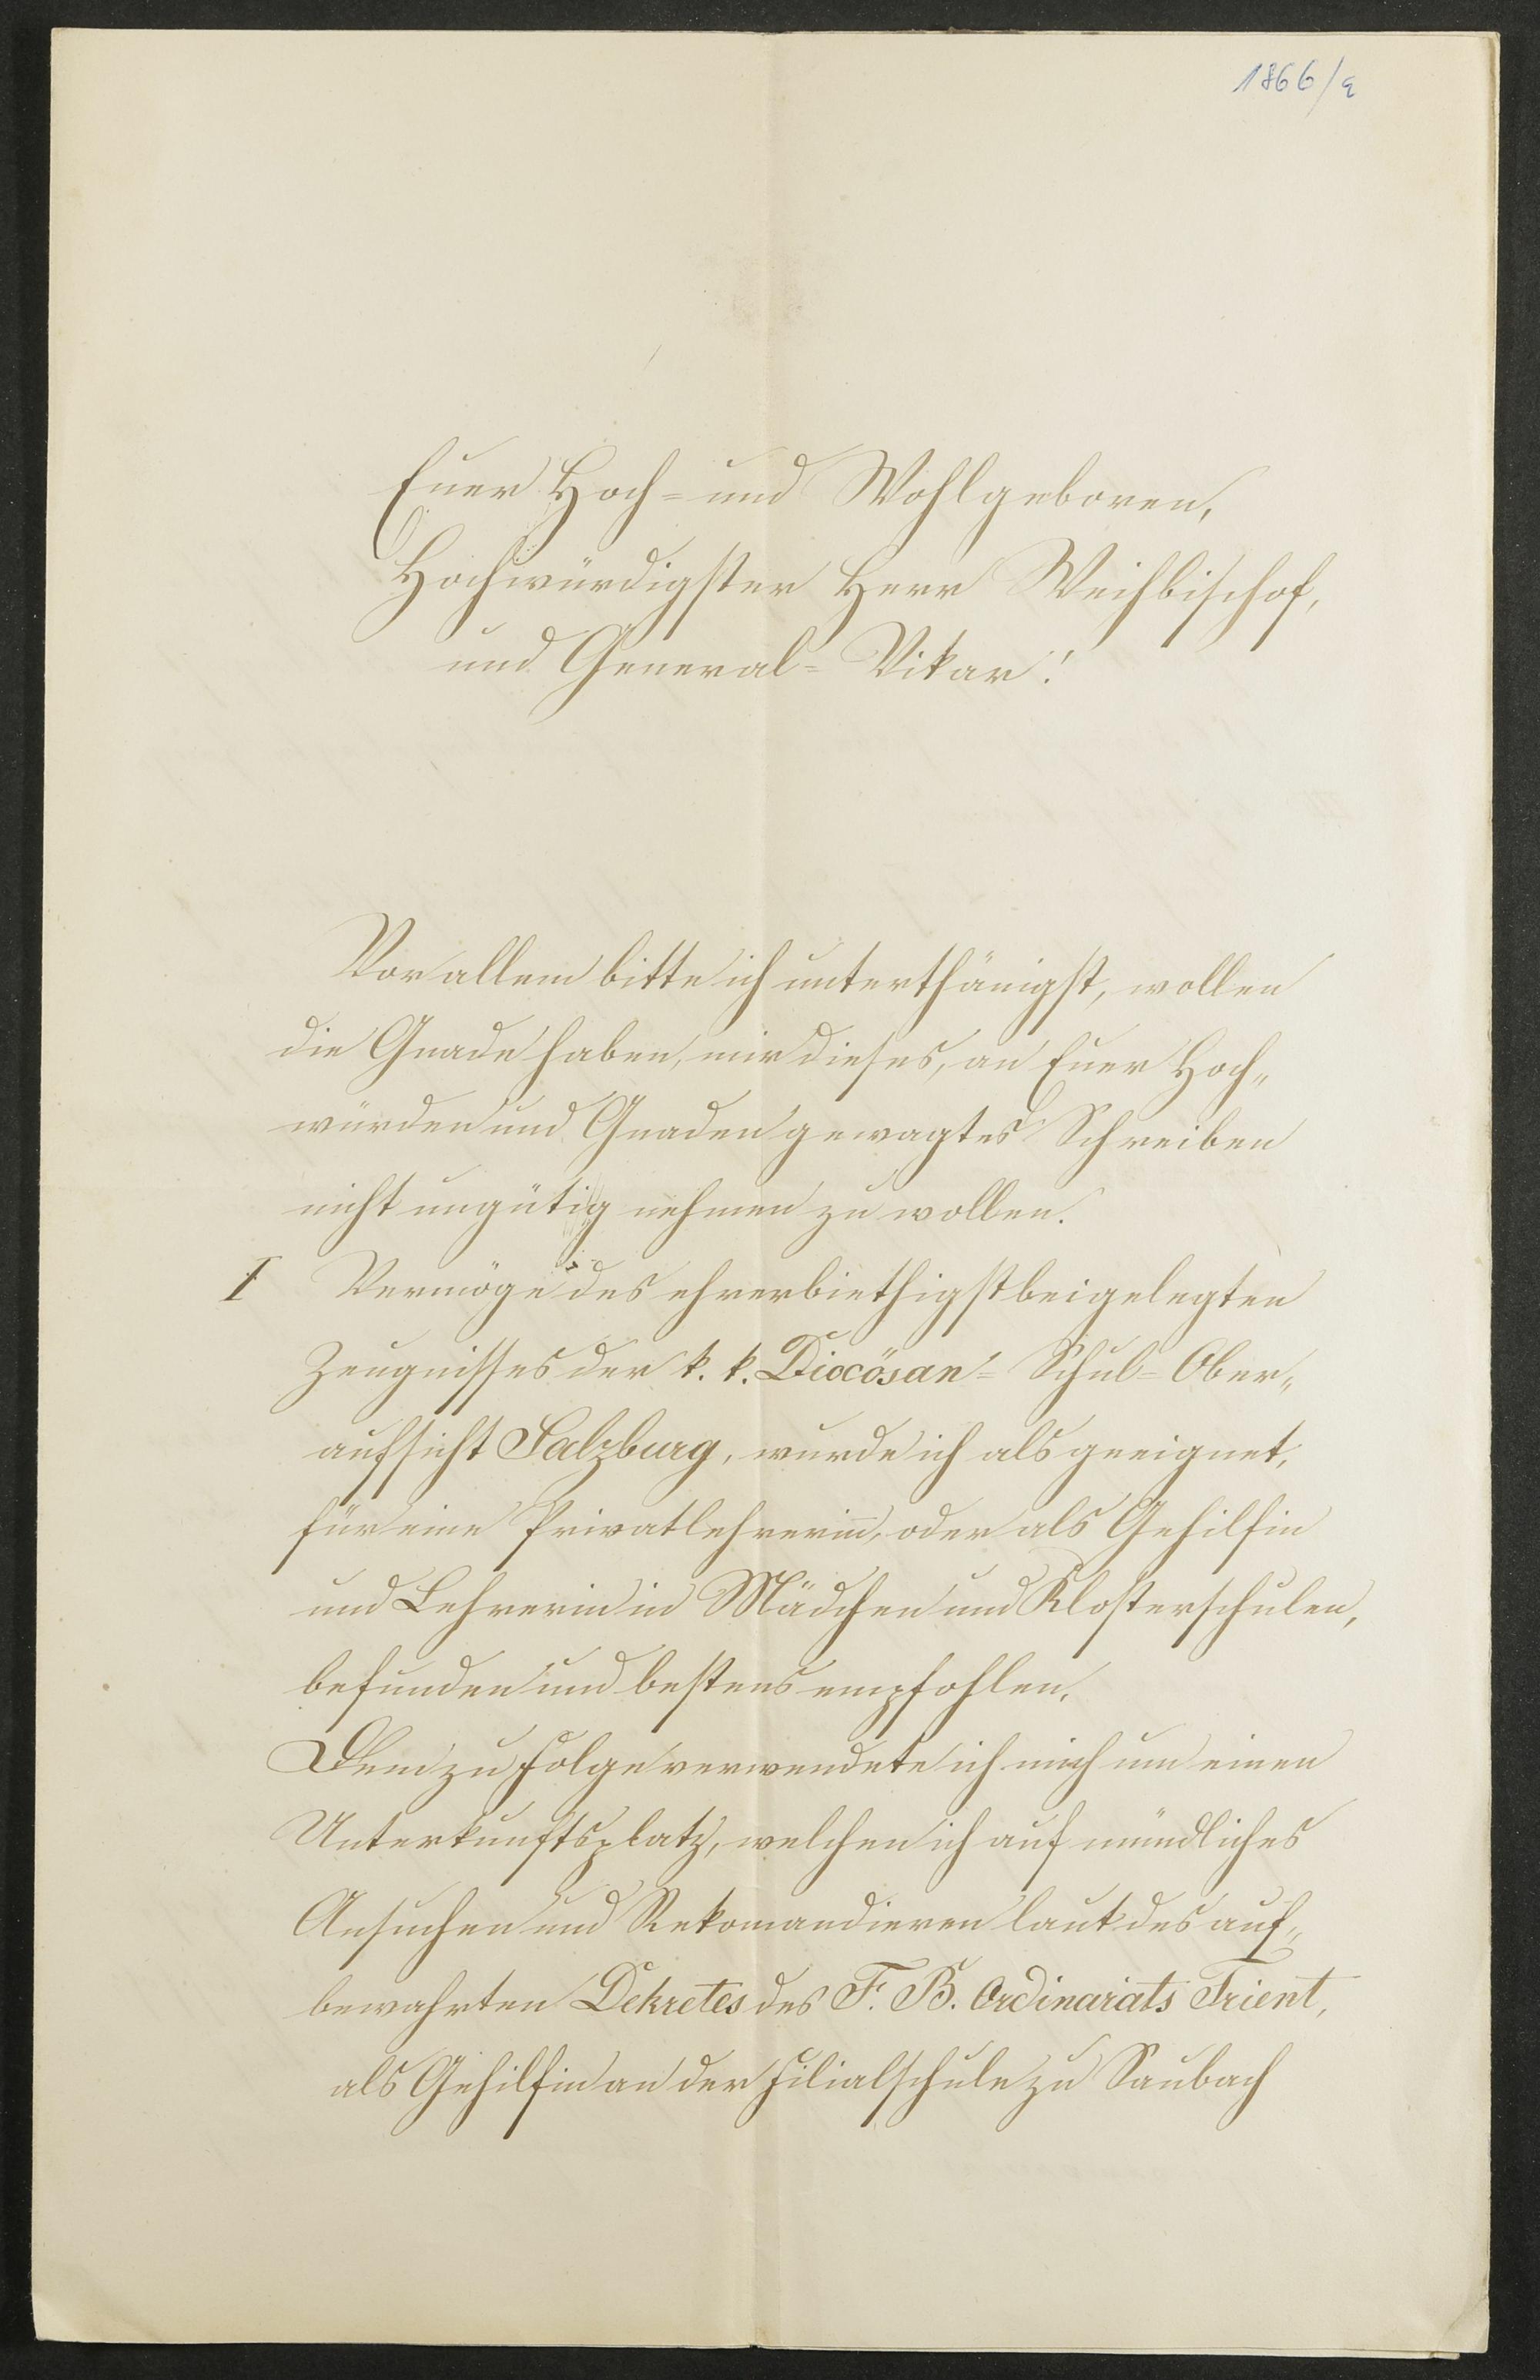 1866/a
Euer Hoch= und Wohlgeboren,
Hochwürdigster Herr Weihbischof,
und General= Vikar!
Vor allem bitte ich unterthänigst, wollen
die Gnade haben, mir dieses, an Euer Hoch„
würden und Gnaden gewagtes Schreiben
nicht ungütig nehmen zu wollen.
I Vermöge des ehrerbiethigst beigelegten
Zeugnisses der k. k. Diocösan= Schul= Ober„
aufsicht Salzburg, wurde ich als geeignet,
für eine Privatlehrerin, oder als Gehilfin
und Lehrerin in Mädchen und Klosterschulen,
befunden und bestens empfohlen.
Dem zu Folge verwendete ich mich um einen
Unterkunftsplatz, welchen ich auf mündliches
Ansuchen und Rekomandieren laut des auf„
bewahrten Dekretes des F. B. Ordinariats Trient,
als Gehilfin an der Filialschule zu Saubach